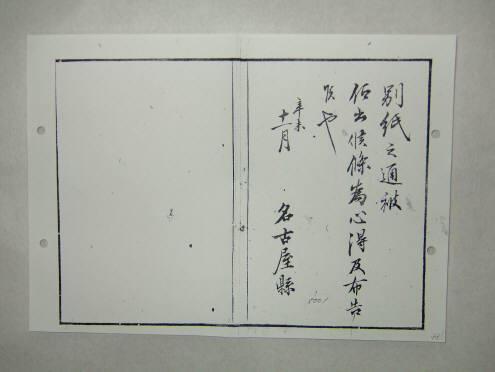 別紙之通被
仰出候條為心得及布告
候也
辛未
十一月
名古屋縣